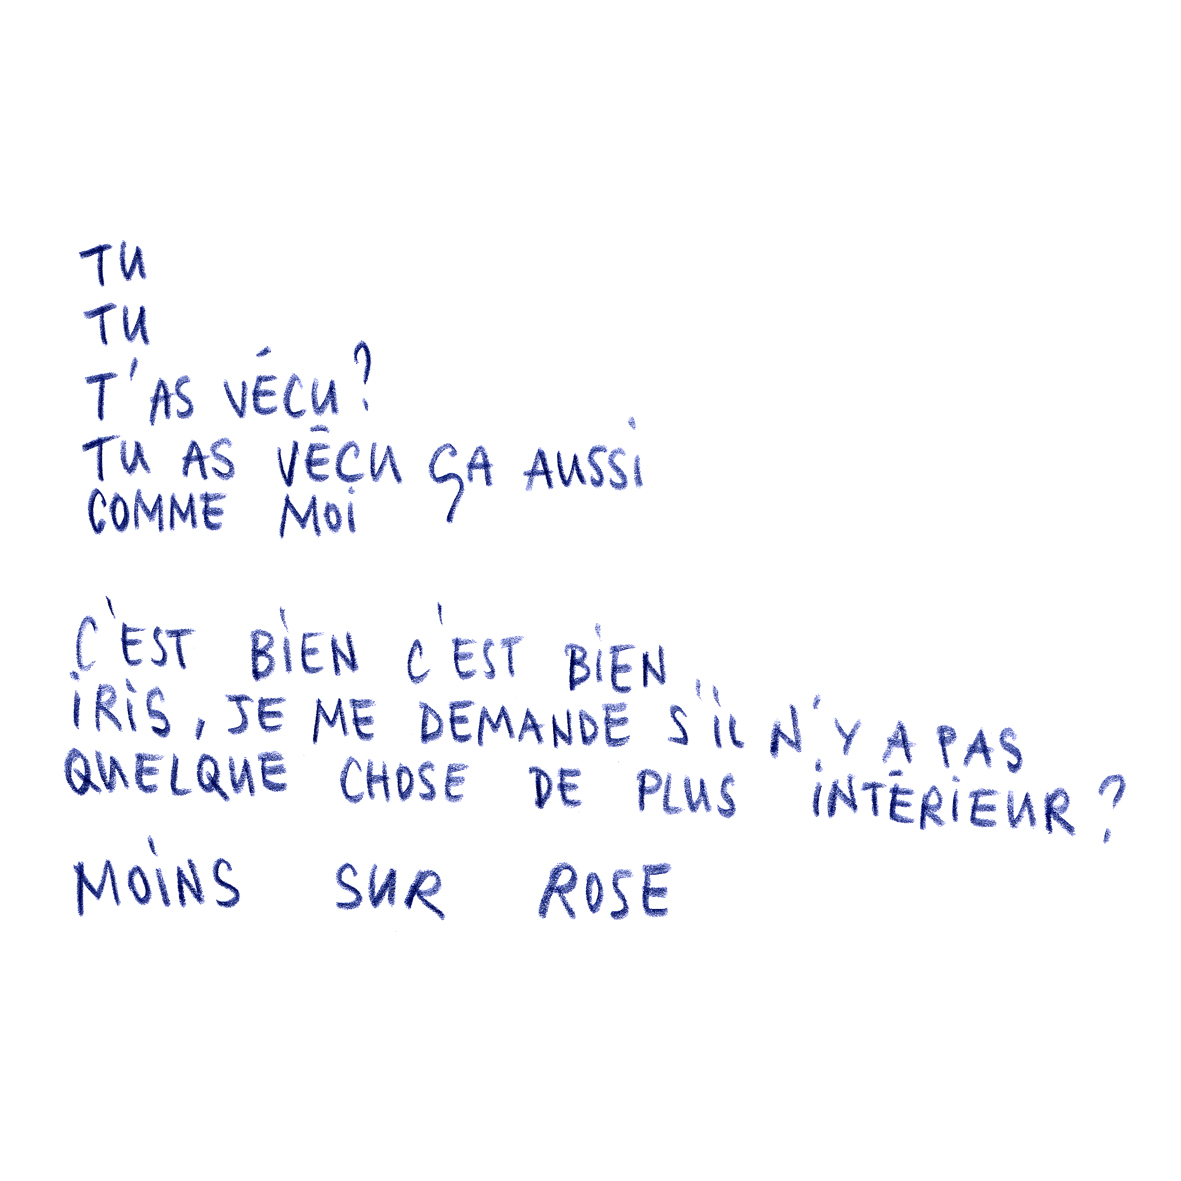 TU
TU
T'AS VÉCU?
TU AS VÉCU ÇA AUSSI
COMME MOI
C'EST BIEN C'EST BIEN
IRIS, JE ME DEMANDE S'IL N'Y A PAS
QUELQUE CHOSE DE PLUS INTÉRIEUR?
MOINS SUR ROSE